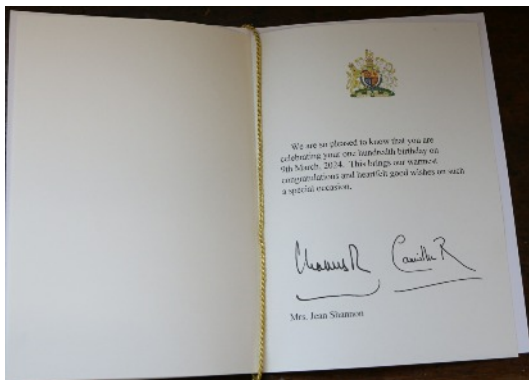 We are so pleased to know that you are
celebrating your one hundredth birthday on
9th March, 2024. This brings our warmest
congratulations and heartfelt good wishes on such
a special occasion.
Charles R
Camilla R
Mrs. Jean Shannon